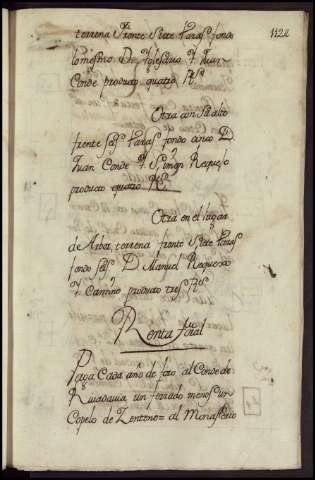 1122
terrena frente Siete Varas fondo
lo mismo D. Yglesario Y. Juan
Conde producto quatro Rs
Otra con su alto
frente seis Varas fondo cinco D.
Juan Conde Y. Simon Requejo
producto quatro Rs
Otra en el lugar
de Arba, terrena frente Siete Varas
fondo seis D. Manuel Requexo
Y. Camino producto tres Rs
Renta foral
Paga Cada año de foro, al Conde de
Rivadavia un ferrado menos un
Copelo de Zenteno = al Monasterio